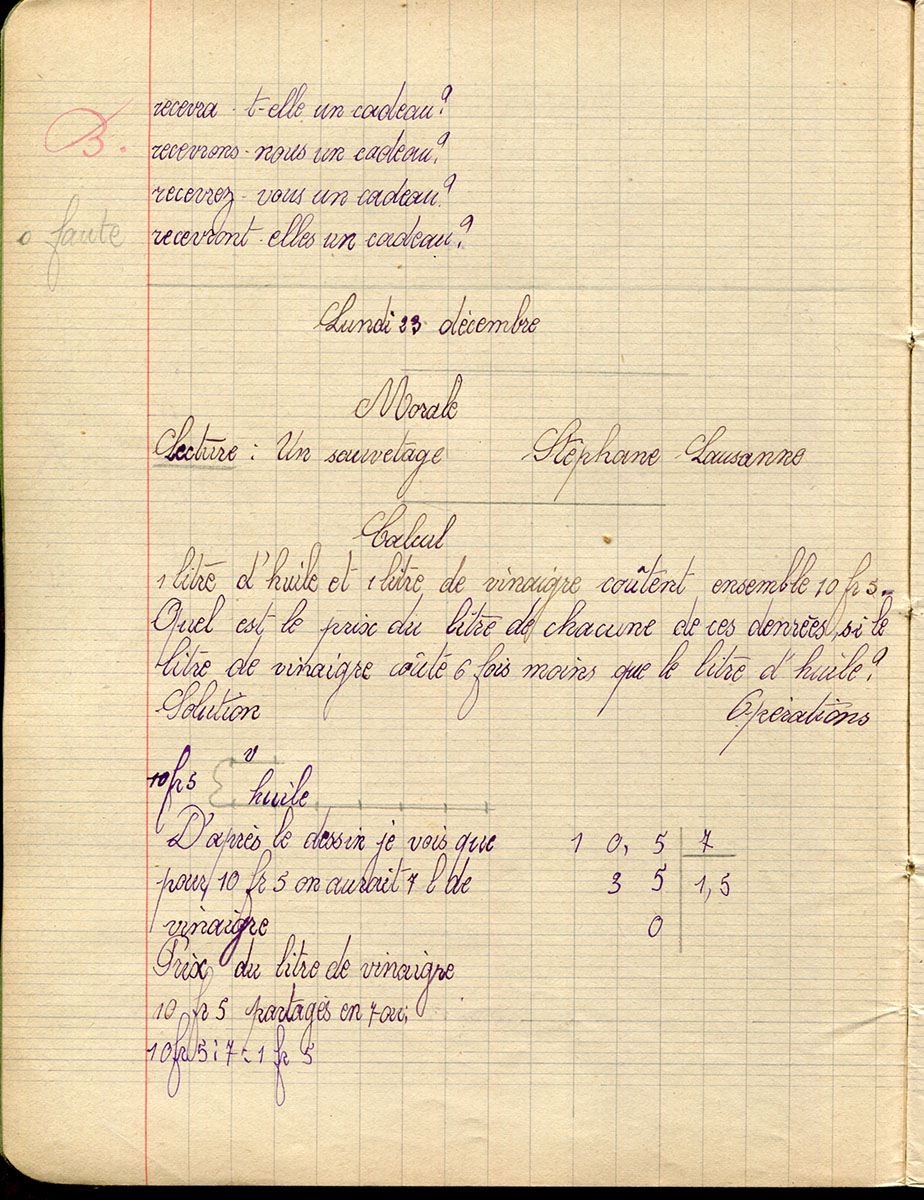 recevra-t-elle un cadeau?
B.
recevrons-nous un cadeau?
recevrez-vous un cadeau?
0 faute
recevront-elles un cadeau?
Lundi 23 décembre
Morale
Lecture : Un sauvetage Stéphane Lausanne
Calcul
1 litre d'huile et 1 litre de vinaigre coûtent ensemble 10 fr 5.
Quel est le prix du litre de chacune de ces denrées, si le
litre de vinaigre coûte 6 fois moins que le litre d'huile?
Solution Opérations
v
10 fr 5 huile
D'après le dessin je vois que 1 0, 5 7
pour 10 fr 5 on aurait 7 l de 3 5 1, 5
vinaigre 0
Prix du litre de vinaigre
10 fr 5 partagés en 7 ou:
10 fr 5 : 7 = 1 fr 5